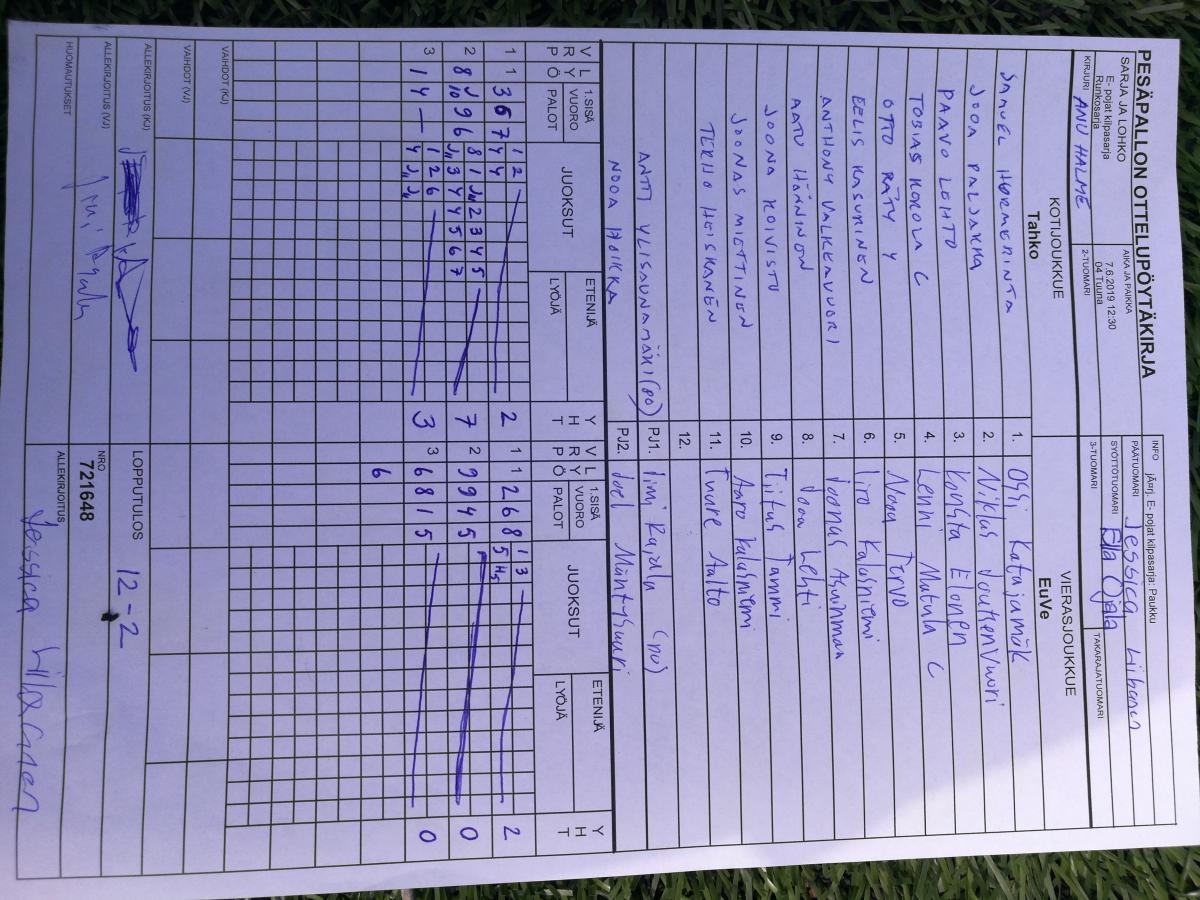 PESÄPALLON OTTELUPÖYTÄKIRJA
INFO jÄrj. E- pojat kilpasarja: Paukku
SARJA JA LOHKO
E- pojat kilpasarja
Runkosarja
AIKA JA PAIKKA
7.6.2019 12:30
04 Tuuna
PÄÄTUOMARI Jessica
SYÖTTÖTUOMARI Ella Ojala
TAKARAJATUOMARI
KIRJURI ANU HALME
2-TUOMARI
3-TUOMARI
KOTIJOUKKUE
Tahko
VIERASJOUKKUE
EuVe
SAMUEL HERMERINTA 1. Ossi Katajamäk
JOOA PALJAKKA 2. Niklas Joutsenvuori
PAAVO LEHTO 3. Konsta Elonen
TOBIAS KOKOLA C 4. Lenni Mutula C
OTTO RÄTY Y 5. Noa Tervo
EELIS KASURINEN 6. Iiro Kalusniemi
ANTHONY VALKEAVUORI 7. Joonas
AATU HÄNNINEN 8. Joou Lehti
JOONA KOIVISTO 9. Tiitus Tammi
JOONAS MIETTINEN 10. Aaro Kalusniemi
TERHO HEISKANEN 11. Tuure Aalto
12.
ANTTI YLISAUNAMÄKI (PO) PJ1. Iimi Rajala (po)
NOOA HOIKKA PJ2. Joel Mäntysuuri
V R P
L Y Ö
1.SISÄ VUORO PALOT
JUOKSUT
ETENIJÄ
LYÖJÄ
Y H T
V R P
L Y Ö
1.SISÄ VUORO PALOT
JUOKSUT
ETENIJÄ
LYÖJÄ
Y H T
1 1 3 6 7 1 2 2 1 1 2 6 8 1 3 2
4 4 5 H5
2 8 J 9 6 8 1 J11 2 3 4 5 7 2 9 9 4 5 0
10 J11 3 4 4 5 6 7
3 1 4 — 1 2 6 3 3 6 8 1 5 0
4 J11 J11 6
VAIHDOT (KJ)
VAIHDOT (VJ)
ALLEKIRJOITUS (KJ)
LOPPUTULOS 12-2
ALLEKIRJOITUS (VJ)
NRO
721648
HUOMAUTUKSET
ALLEKIRJOITUS Jessica